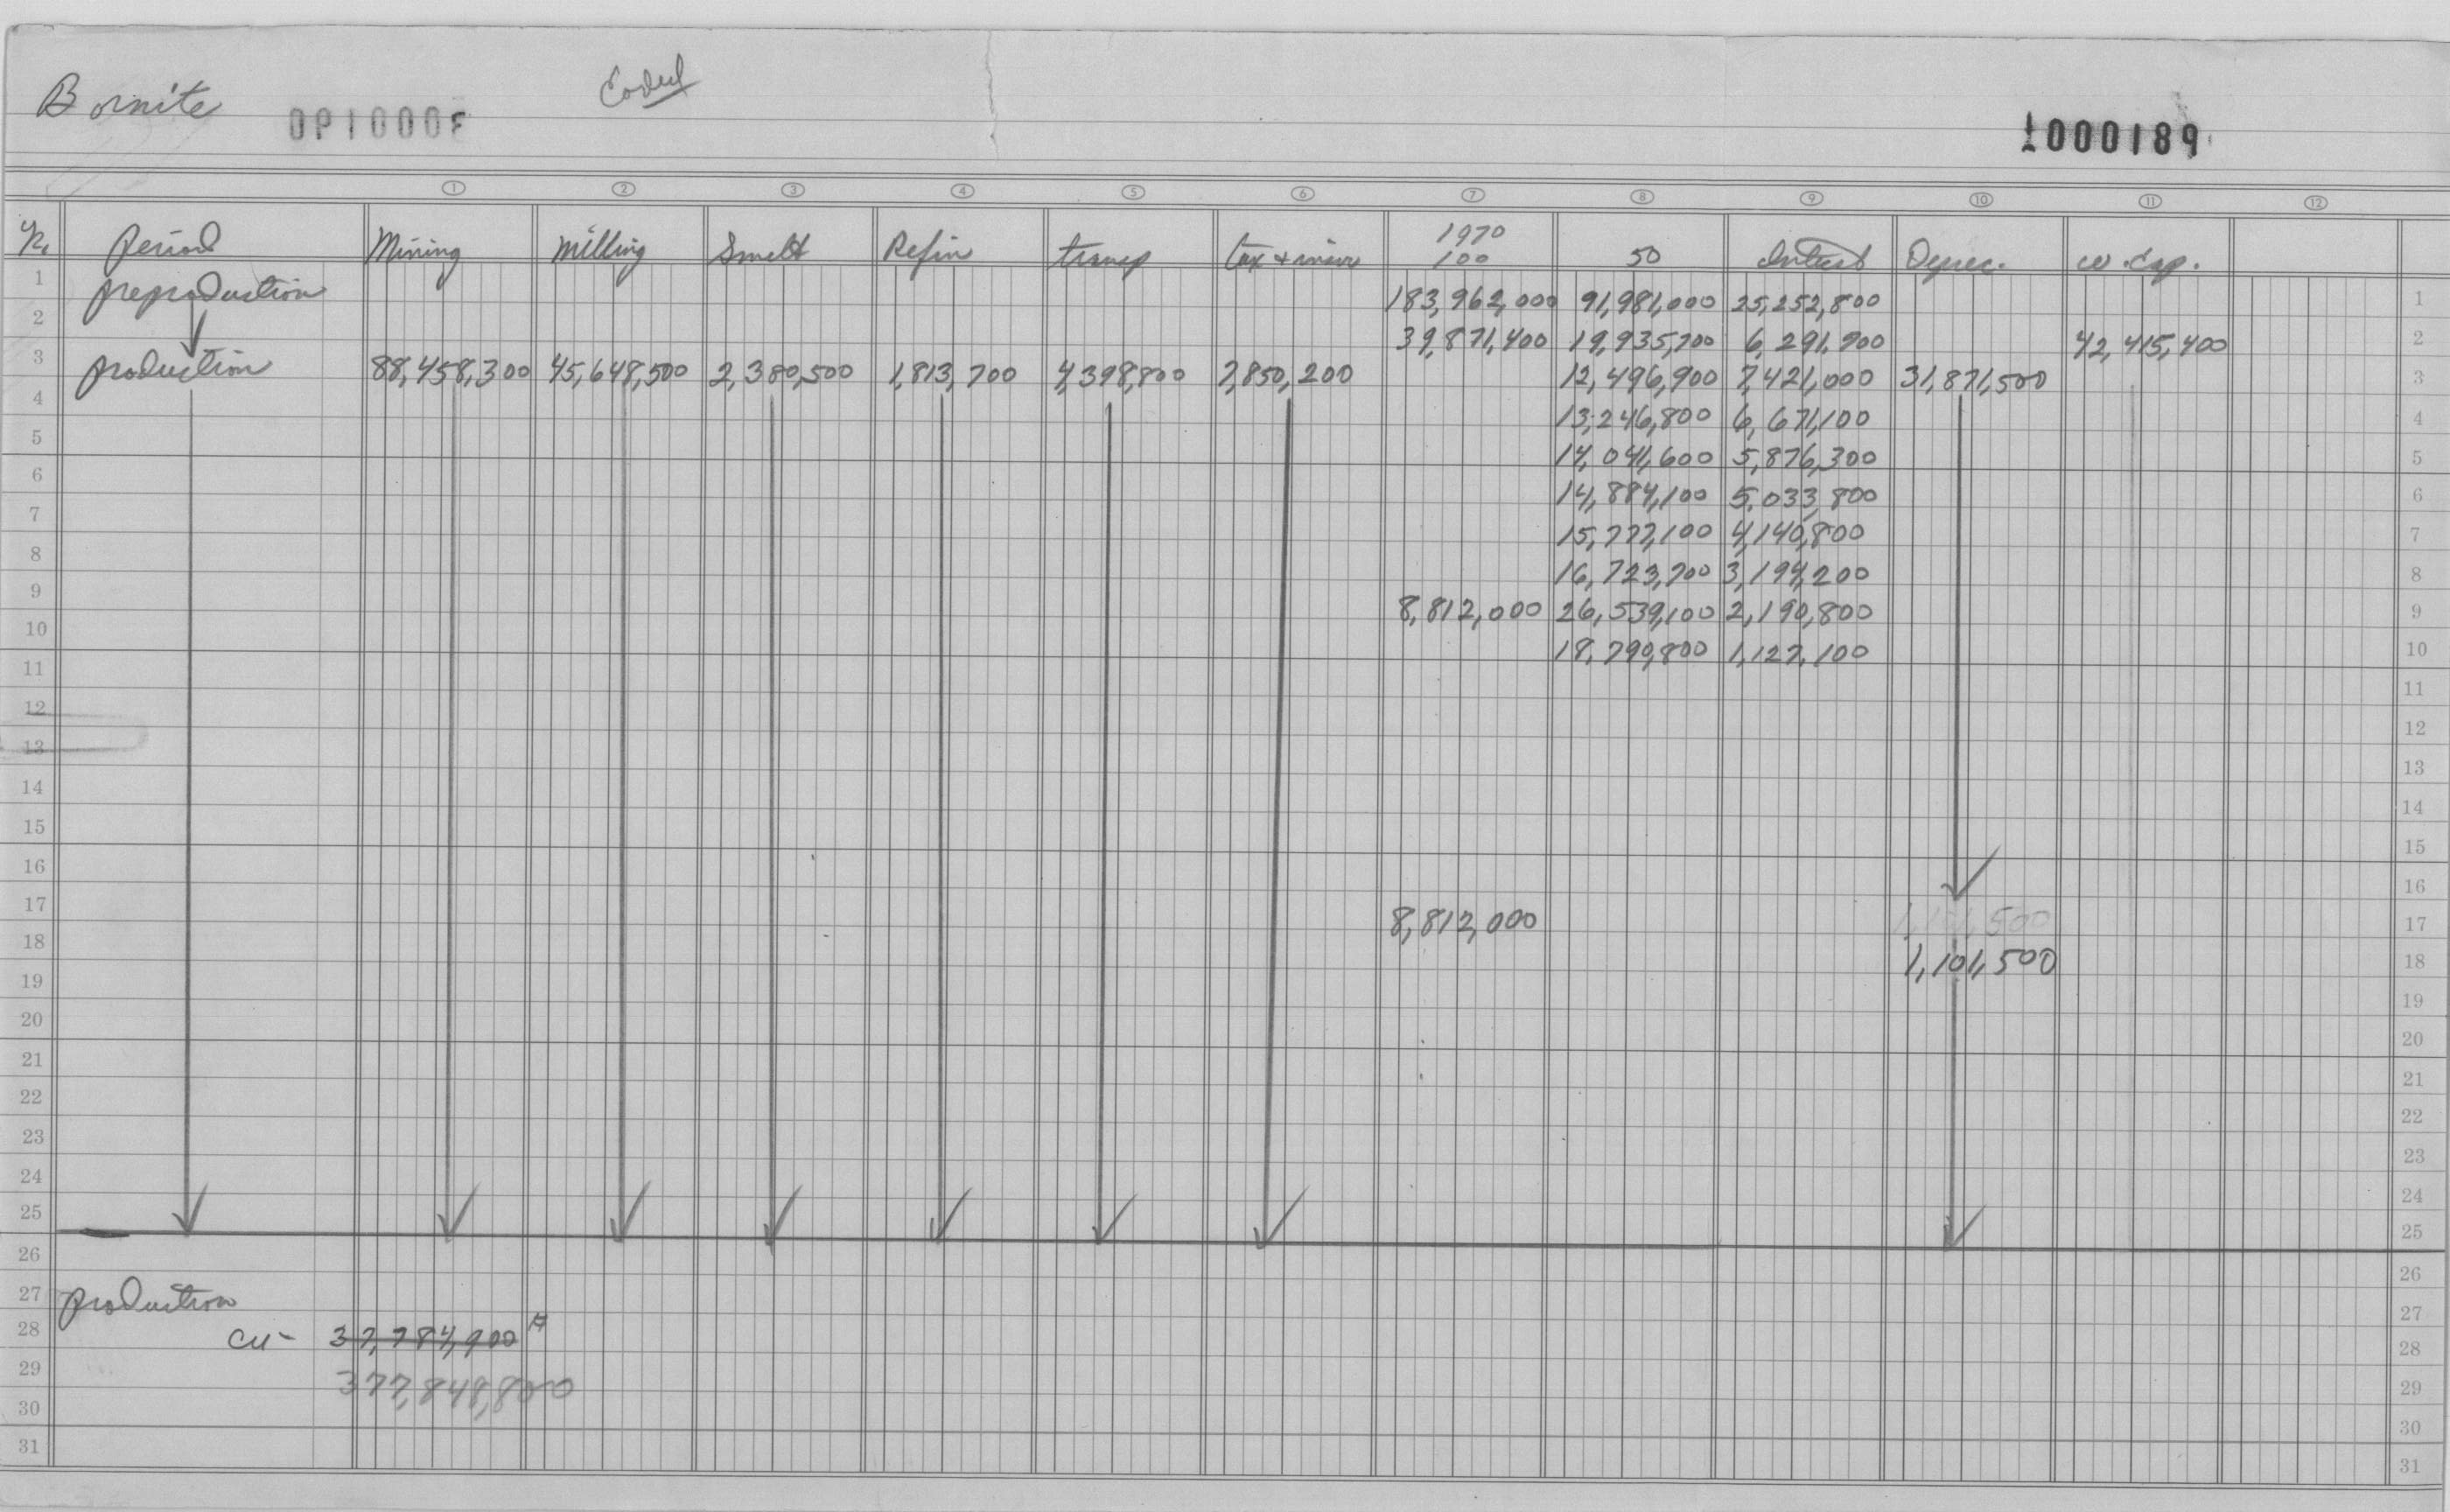 Bornite
Coded
1000189
1 2 3 4 5 6 7 8 9 10 11 12
Yr. Period Mining Milling Smelt Refin transp tax + insur 1970 100 50 Interest Deprec. w. cap.
1 preproduction 183,962,000 91,981,000 25,252,800 1
2 39,871,400 19,935,700 6,291,700 42,415,400 2
3 production 88,458,300 45,648,500 2,380,500 1,813,700 4,398,800 7,850,200 12,496,900 7,421,000 31,871,500 3
4 13,246,800 6,671,100 4
5 14,041,600 5,876,300 5
6 14,884,100 5,033,800 6
7 15,777,100 4,140,800 7
8 16,723,700 3,194,200 8
9 8,812,000 26,539,100 2,190,800 9
10 18,790,800 1,127,100 10
11 11
12 12
13 13
14 14
15 15
16 16
17 8,812,000 1,101,500 17
18 1,101,500 18
19 19
20 20
21 21
22 22
23 23
24 24
25 25
26 26
27 production 27
28 Cu - 37,784,900 # 28
29 377,848,800 29
30 30
31 31